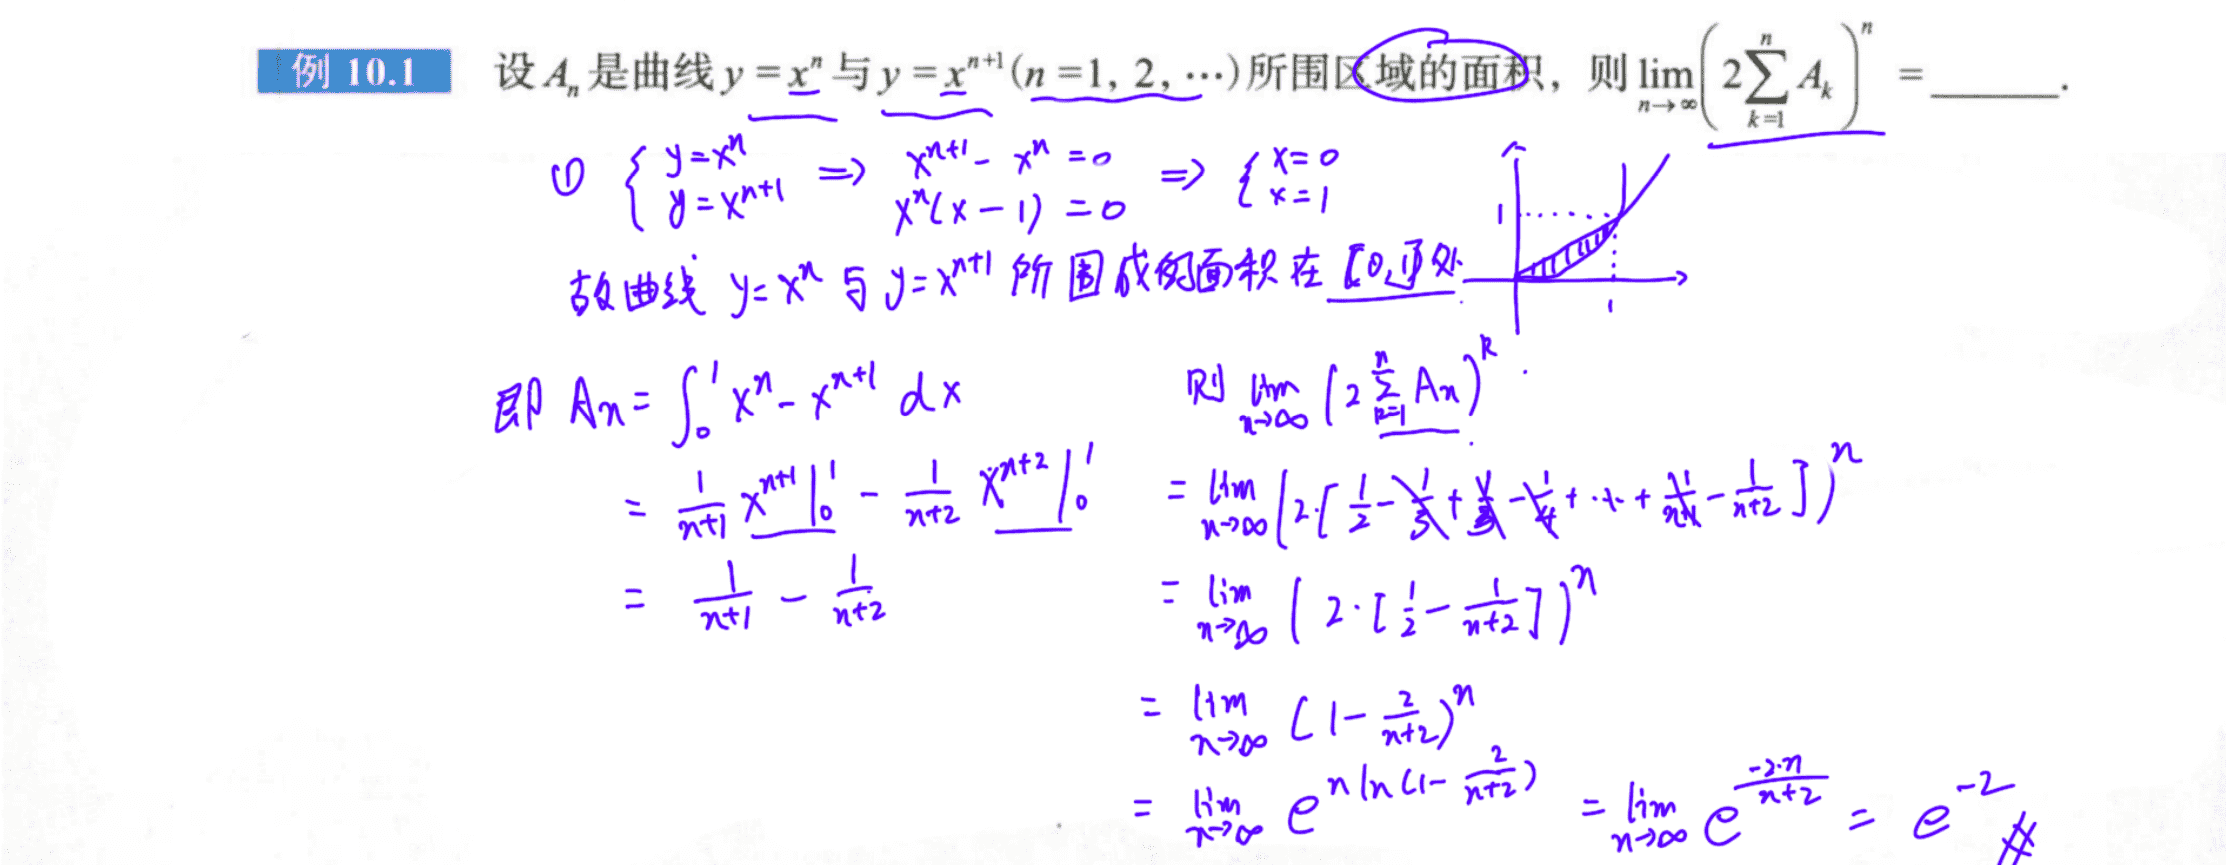 例 10.1 设 Aₙ 是曲线 y = xⁿ 与 y = xⁿ⁺¹ (n = 1, 2, ⋯) 所围区域的面积，则 lim_{n→∞} (2∑_{k=1}^{n} A_k)ⁿ = ______.
① { y=xⁿ, y=xⁿ⁺¹ ⇒ xⁿ⁺¹ - xⁿ = 0, xⁿ(x-1) = 0 ⇒ { x=0, x=1
1
1
故曲线 y=xⁿ 与 y=xⁿ⁺¹ 所围成的面积在 [0,1] 处.
即 Aₙ = ∫₀¹ xⁿ - xⁿ⁺¹ dx
= 1/(n+1) xⁿ⁺¹ |₀¹ - 1/(n+2) xⁿ⁺² |₀¹
= 1/(n+1) - 1/(n+2)
则 lim_{n→∞} (2 ∑_{n=1}^{n} Aₙ)^k.
= lim_{n→∞} (2·[1/2 - 1/3 + 1/3 - 1/4 + ⋯ + 1/(n+1) - 1/(n+2)])ⁿ
= lim_{n→∞} (2·[1/2 - 1/(n+2)])ⁿ
= lim_{n→∞} (1 - 2/(n+2))ⁿ
= lim_{n→∞} e^{n ln(1 - 2/(n+2))} = lim_{n→∞} e^{-2·n/(n+2)} = e⁻² #